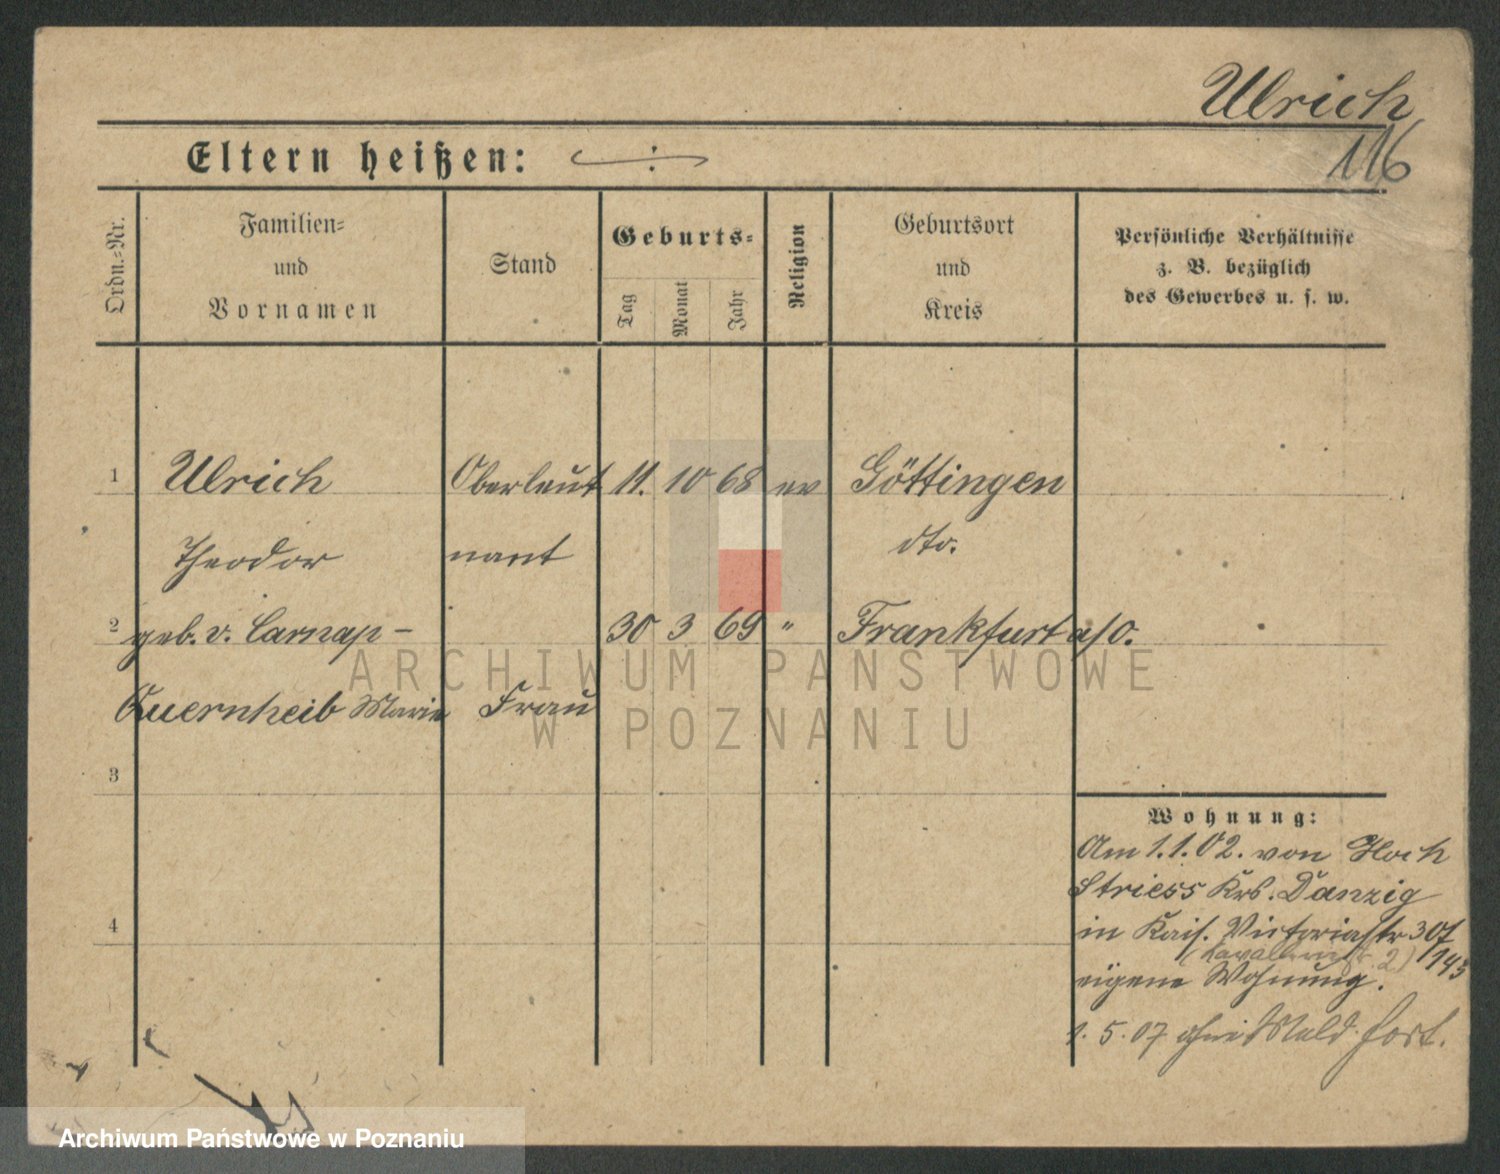 Ulrich
116
Eltern heißen: ∴
Ordn.-Nr.
Familien-
und
Vornamen
Stand
Geburts-
Tag
Monat
Jahr
Religion
Geburtsort
und
Kreis
Persönliche Verhältnisse
z. B. bezüglich
des Gewerbes u. s. w.
1 Ulrich Oberleut 11. 10 68 ev Göttingen
Theodor nant dto.
2 geb. v. Carnap- 30 3 69 " Frankfurt a/O.
Quernheib Marie Frau
ARCHIWUM PAŃSTWOWE
W POZNANIU
3
Wohnung:
Am 1.1.02. von Hoch
Striess Krs. Danzig
4
in Kais. Victoriastr 30/
143
eigene Wohnung.
1. 5. 07 ohne Meld. fort.
Archiwum Państwowe w Poznaniu